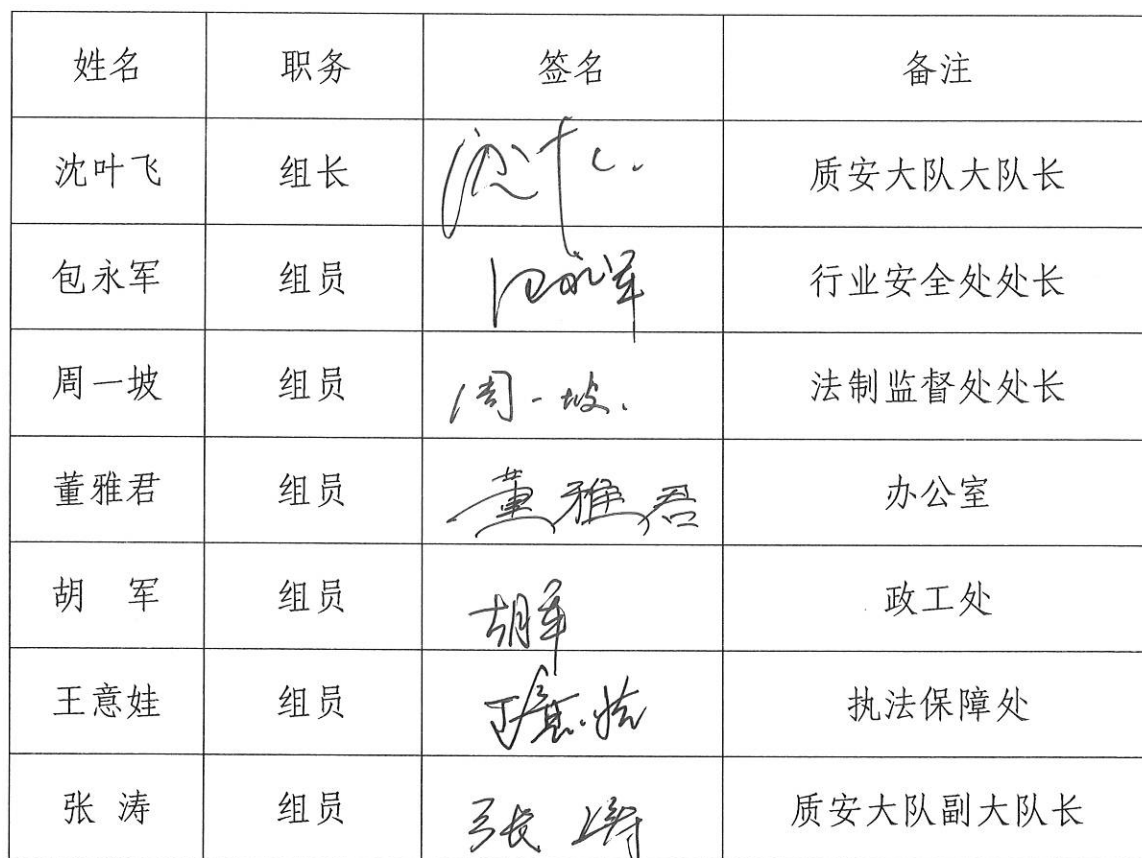 姓名 职务 签名 备注
沈叶飞 组长 质安大队大队长
包永军 组员 包永军 行业安全处处长
周一坡 组员 周一坡. 法制监督处处长
董雅君 组员 董雅君 办公室
胡 军 组员 胡军 政工处
王意娃 组员 执法保障处
张 涛 组员 张涛 质安大队副大队长